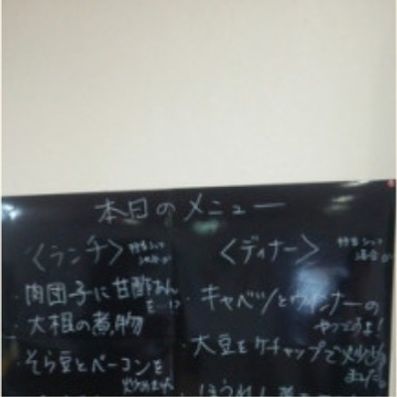 本日のメニュー
〈ランチ〉
・肉団子に甘酢あん
を…!?
・大根の煮物
・そら豆とベーコンを
炒めました
〈ディナー〉
・キャベツとウインナーの
やつですよ!
・大豆をケチャップで炒め
ました。